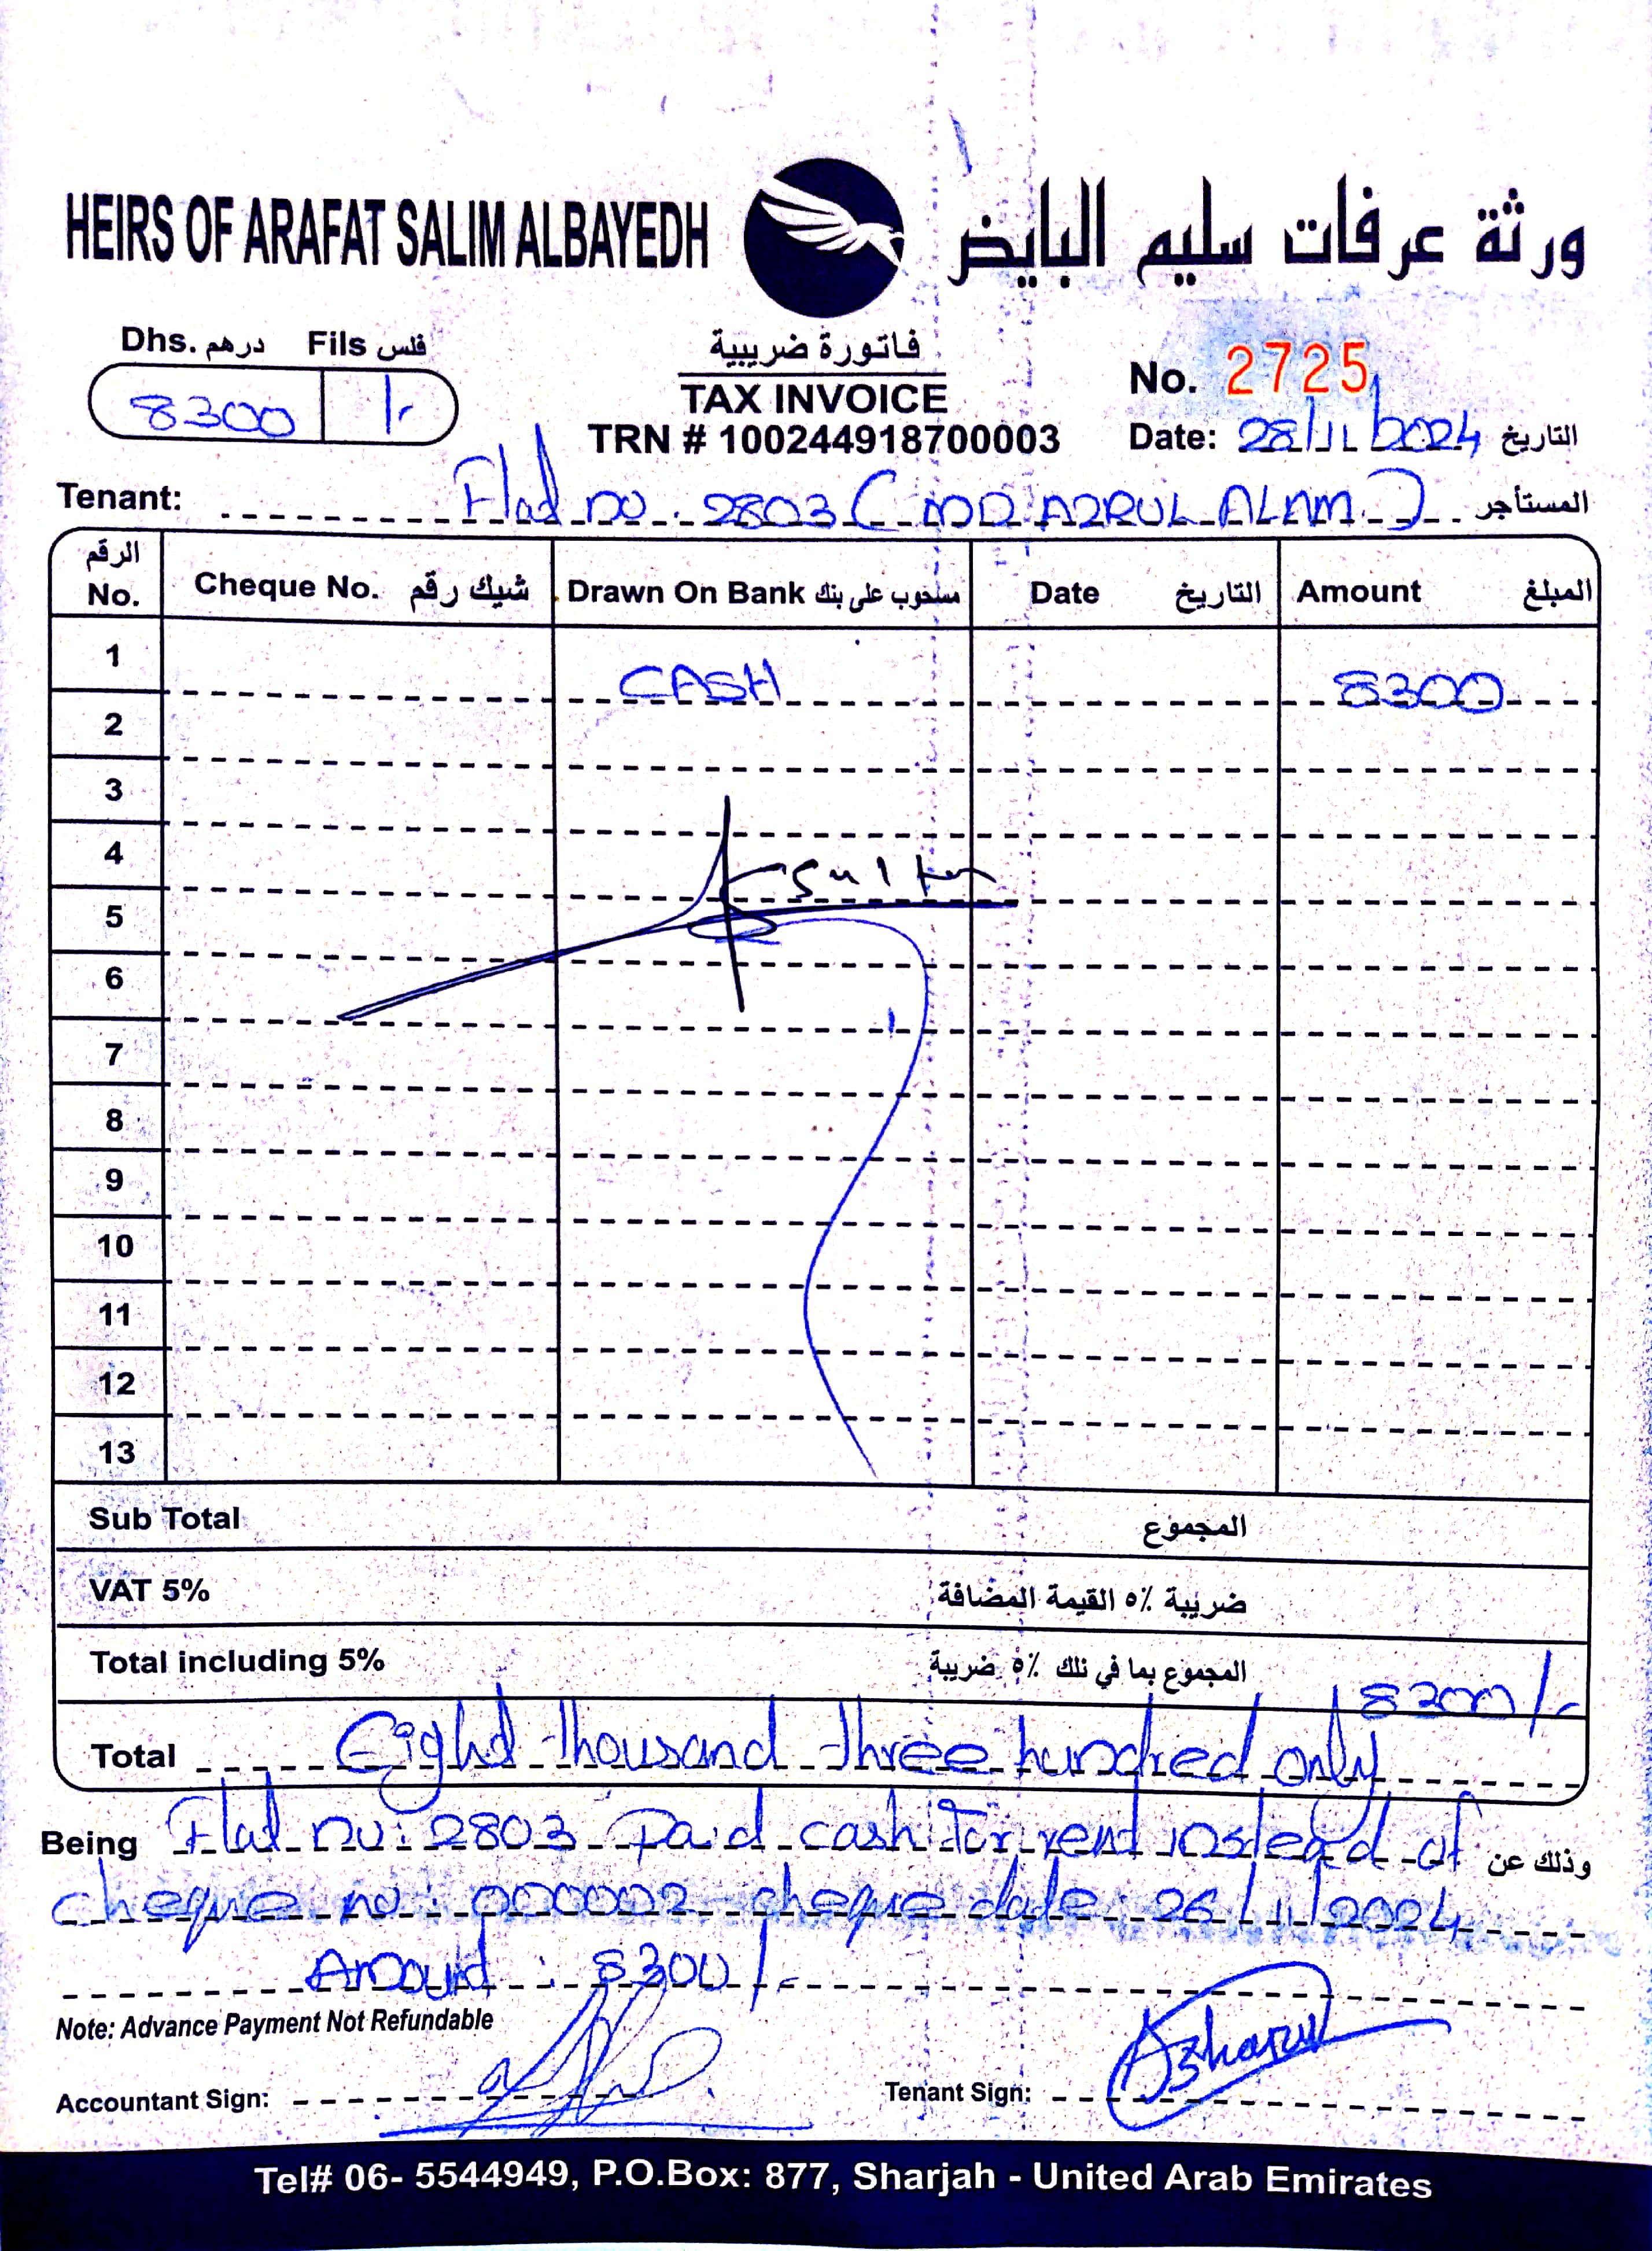 HEIRS OF ARAFAT SALIM ALBAYEDH ورثة عرفات سليم البايض
Dhs. درهم Fils فلس
8300 /-
فاتورة ضريبية
TAX INVOICE
TRN # 100244918700003
No. 2725
Date: 28/11/2024 التاريخ
Tenant: Flat no. 2803 (MD AZRUL ALAM) المستأجر
الرقم No. Cheque No. شيك رقم Drawn On Bank مسحوب على بنك Date التاريخ Amount المبلغ
1 CASH 8300
2
3
4
5
6
7
8
9
10
11
12
13
Sub Total المجموع
VAT 5% ضريبة ٥٪ القيمة المضافة
Total including 5% المجموع بما في ذلك ٥٪ ضريبة 8300/-
Total Eight thousand three hundred only
Being Flat no: 2803 paid cash for rent instead of وذلك عن
cheque no: 000002 cheque date: 26/11/2024
Amount: 8300/-
Note: Advance Payment Not Refundable
Accountant Sign: Tenant Sign: Azharul
Tel# 06- 5544949, P.O.Box: 877, Sharjah - United Arab Emirates